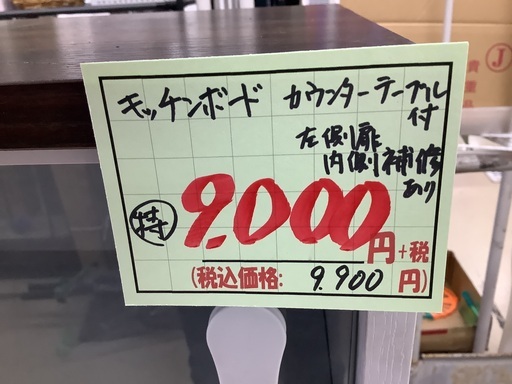 キッチンボード カウンターテーブル付
左側扉
内側補修
あり
特 9.000円+税
(税込価格: 9.900円)
J
貴重品